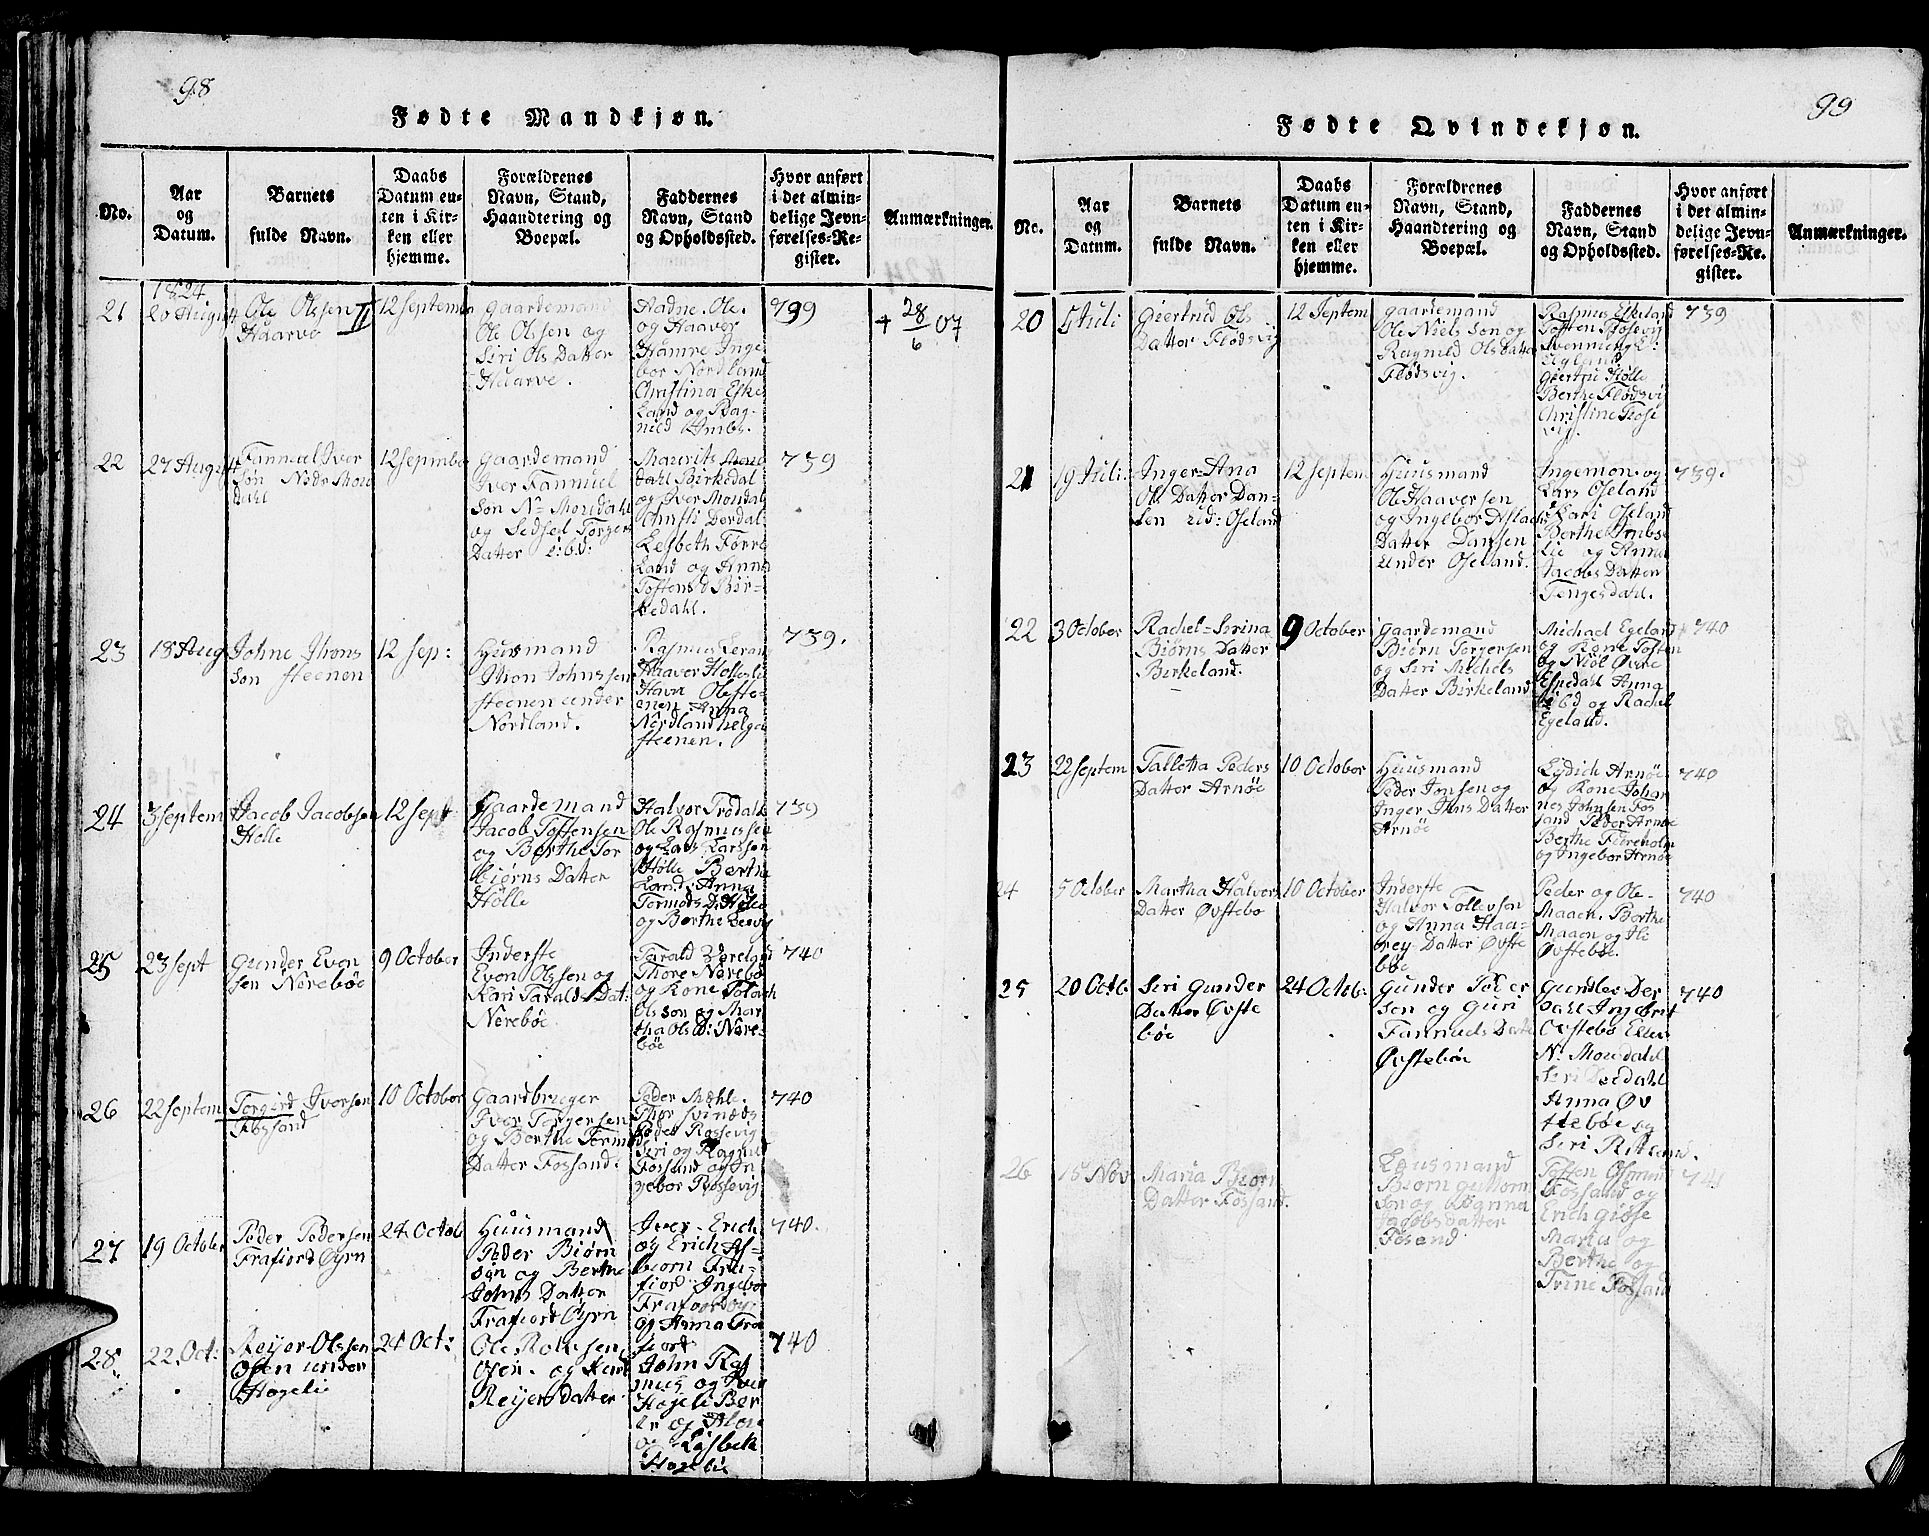 98
Fødte Mandkjøn.
No.
Aar
og
Datum.
Barnets
fulde Navn.
Daabs
Datum en-
ten i Kir-
ken eller
hjemme.
Forældrenes
Navn, Stand,
Haandtering og
Boepæl.
Faddernes
Navn, Stand
og Opholdssted.
Hvor anført
i det almin-
delige Jevn-
førelses-Re-
gister.
Anmærkninger.
21
1824
20 August
Ole Olsen II
Haarvo
12 September
Gaardemand
Ole Olsen og
Siri Ols Datter
Haarve.
Aadne. Ole.
og Haaver
Hamre Inge
bor Nordland
Christina Eske
Land og Rag-
nild Ambs.
799
+ 28/6 07
22
27 August
Fannuel Iver
Søn Nedr Mou
dahl
12 Sepember
Gaardemand
Iver Fannuel
Søn No Moudahl
og Sidsel Torger
Datter i:b:d:
Mauritz
dahl Birkedal
og Iver Moudal
Christi Dordal
Lisbeth Førre
Land og Anna
Tostens D Bir-
kedahl.
739
23
18 Aug
Johne Thons
Søn Steenen
12 Sep:
Huusmand
Thon Johnssen
Steenen under
Nordland.
Rasmus Lerang
Haaver Hollesli
Havn Ole Ste-
enen Anna
Nordland helge
Steenen.
739.
24
3 Septem
Jacob Jacobsen
Holle
12 Sept
Gaardemand
Jacob Tostensen
og Berthe Tor
biørns Datter
Hølle
Halvor Tredalh
Ole Rasmussen
og Lars Larssen
Hølle Berthe
Land: Anna
Tormods D: Hølle
og Berthe Lervig
739
25
23 Sept
Gunder Even
sen Nerebøe
9 October
Inderste
Even Olssen og
Kari Taralds Dat:
Nerebøe
Tarald
Thore Nerebø
og Kone
Olsson og Mar
tha Ols D: Nere-
bøe
740
26
22 Septem
Torgerd Iversen
Fossand
10 October
Gaardbruger
Iver Torgersen
og Berthe Tormods
Datter Fossand:
Peder Mæhle.
Thor Svinæds
Peder Rossevig
Siri og Ragnild
Fossand og In
gebor Rossevig
740
27
19 October
Peder Pedersen
Frafiord Øyrn
24 Octob
Huusmand
Peder Biørn
Søn og Berthe
Johns Datter
Frafiord Øyrn
Iver. Erich
og Erich As-
beorn Fra-
fiord. Ingebor
Frafiord
og Anna Fra
fiord
740.
28
22 Oct:
Reyer Olssen
Osen under
Hogelie
24 Oct:
Ole
Osen. og
Reyers Datter
John Ras
mus og Iver
Hogeli Ber
te og
og Lisbeth
Hogelie
740
99
Fødte Qvindekjøn.
No.
Aar
og
Datum.
Barnets
fulde Navn.
Daabs
Datum en-
ten i Kir-
ken eller
hjemme.
Forældrenes
Navn, Stand,
Haandtering og
Boepæl.
Faddernes
Navn, Stand
og Opholdssted.
Hvor anført
i det almin-
delige Jevn-
førelses-Re-
gister.
Anmærkninger.
20
5 Juli
Giertrud Ols
Datter Flødsvig
12 Septem
Gaardemand
Ole Niels Søn og
Ragnild Ols Datter
Flødsvig.
Rasmus Eskeland
Tosten Flosevig
Svenning
Egland
Giertru Hølle
Berthe Flødsvig
Christine Flose
vig.
739
21
19 Juli
Inger-Ana
Ole Datter Dan-
sen und: Oseland
12 Septem
Huusmand
Ole Haaversen
og Ingebor Aslachs
Datter Dansen
under Oseland.
Ingemon. og
Lars Oseland
Kari Oseland
Berthe Ambse
lie og Anna
Jacobs Datter
Tengesdahl.
739.
22
3 October
Rachel-Serina
Biørns Datter
Birkeland.
9 October
Gaardemand
Biørn Torgersen
og Siri Michels
Datter Birkeland
Michael Egeland
og Kone Tosten
og Niel Øvre
Espedahl Anna
ibd og Rachel
Egeland.
740
23
22 Septem
Talletta Peders
Datter Arnøe
10 October
Huusmand
Peder Jonsen og
Inger Jens Datter
Arnøe
Lydich Arnøe
og Kone Johan
nes Johnsen Fos
sand Peder Arnøe
Berthe Fedreholm
og Ingebor Arnøe
740
24
5 October
Martha Halvors
Datter Øvstebø
10 October
Inderste
Halvor Tollevsen
og Anna Haa-
vey Datter Øvste
bøe
Peder og Ole-
Maaen. Berthe
Maaen og Ili
Øvstebøe.
740
25
20 Octb
Siri Gunder
Datter Øvste
bøe
24 Octob:
Gunder Peder
sen og Guri
Fannuels Datt
Øvstebøe
Gundle Dør
dahl Ingebrit
Øvstebø Ellen
N. Moudahl
Siri Dordahl
Anna Øv
stebøe og
Siri Riteland.
740
26
15 Nov
Maria Biørn
Datter Fossand.
Huusmand
Biørn Guttorm
Søn og
Jacobsdatter
Fosand
Tosten Osmun
Fossand og
Erich Giøse
Maria og
Berthe og
Trine Fossand
741